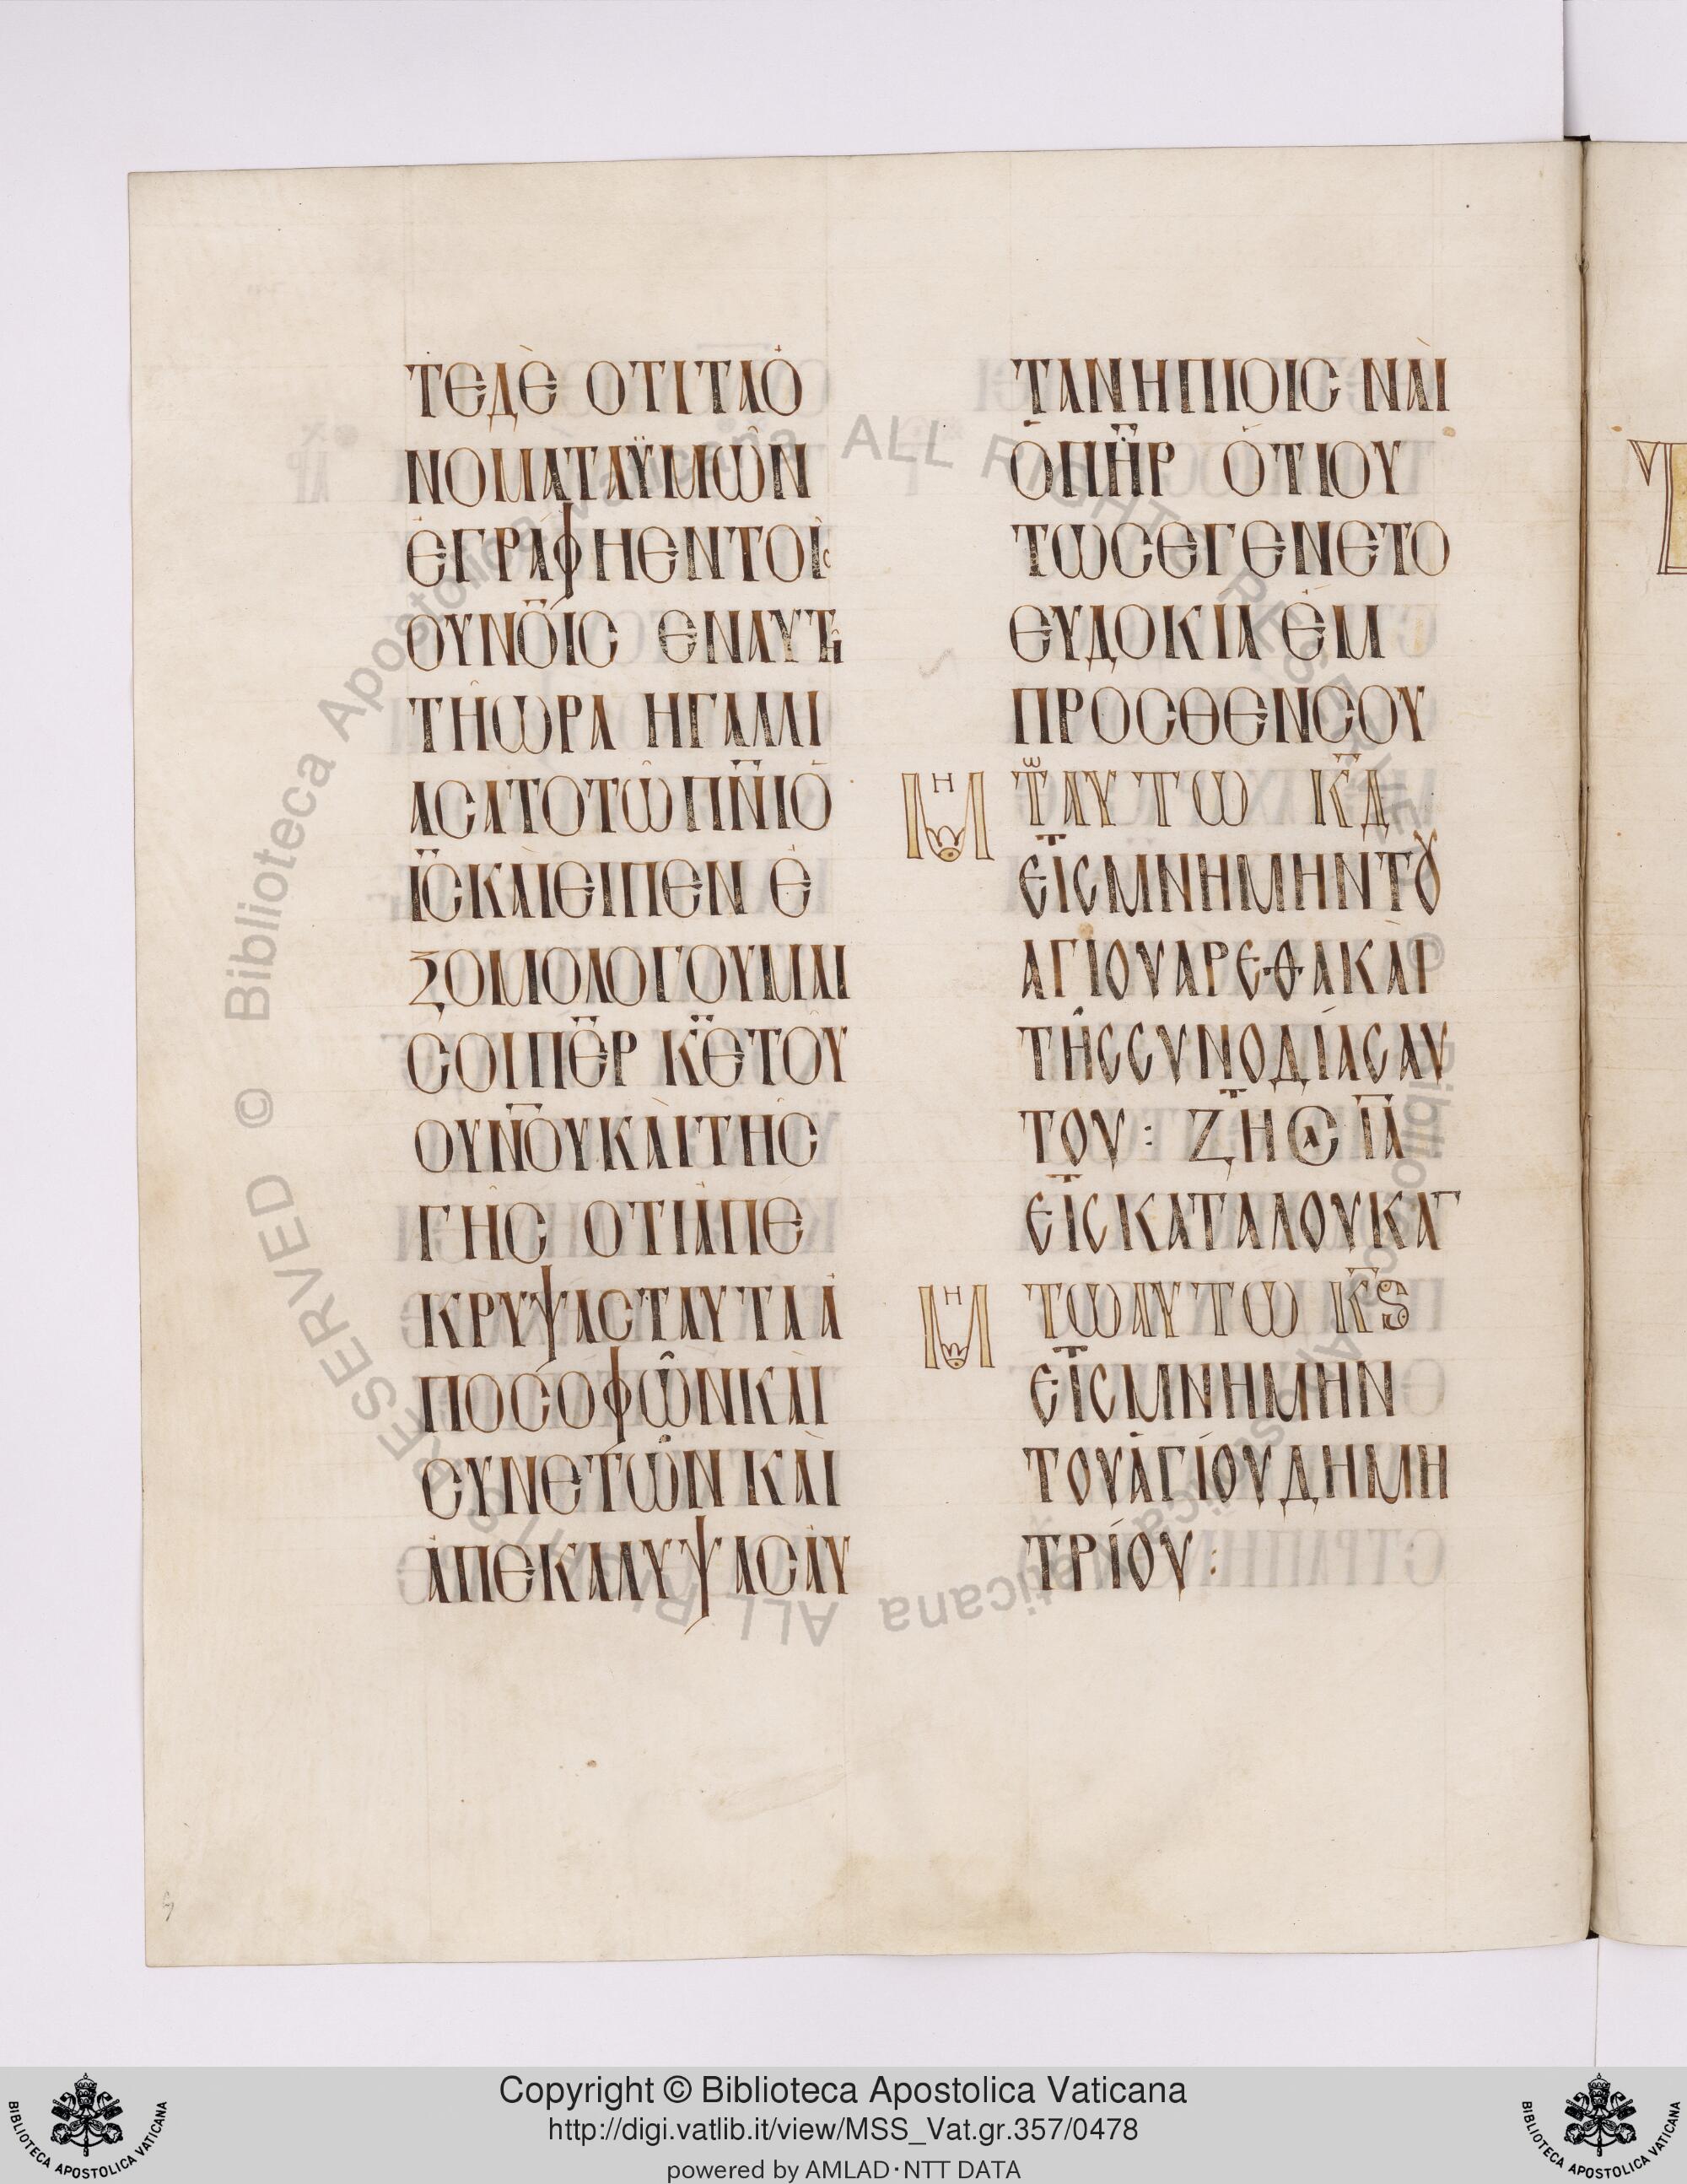 ΤΕΔΕ ΟΤΙ ΤΑΟ
ΝΟΜΑΤΑΫΜΩΝ
ΕΓΡΑΦΗΕΝΤΟΙϹ
ΟΥΝΟΙϹ ΕΝΑΥΤΗ
ΤΗΩΡΑ ΗΓΑΛΛΙ
ΑϹΑΤΟΤΩΠΝΙΟ
ΙϹΚΑΙΕΙΠΕΝ Ε
ΞΟΜΟΛΟΓΟΥΜΑΙ
ϹΟΙΠΕΡ ΚΕΤΟΥ
ΟΥΝΟΥΚΑΙΤΗϹ
ΓΗϹ ΟΤΙΑΠΕ
ΚΡΥΨΑϹΤΑΥΤΑΑ
ΠΟϹΟΦΩΝΚΑΙ
ϹΥΝΕΤΩΝ ΚΑΙ
ΑΠΕΚΑΛΥΨΑϹΑΥ
ΤΑΝΗΠΙΟΙϹ ΝΑΙ
ΟΠΗΡ ΟΤΙΟΥ
ΤΩϹΕΓΕΝΕΤΟ
ΕΥΔΟΚΙΑ ΕΜ
ΠΡΟϹΘΕΝϹΟΥ
ΜΗ ΤΩ ΑΥΤΩ ΚΔ
ΕΙϹΜΝΗΜΗΝΤΟΥ
ΑΓΙΟΥΑΡΕΘΑΚΑΙ
ΤΗϹϹΥΝΟΔΙΑϹΑΥ
ΤΟΥ : ΖΗ ϹΑ ΙΑ
ΕΙϹΚΑΤΑΛΟΥΚΑΝ
ΜΗ ΤΩΑΥΤΩ ΚϚ
ΕΙϹΜΝΗΜΗΝ
ΤΟΥΑΓΙΟΥΔΗΜΗ
ΤΡΙΟΥ :
Copyright © Biblioteca Apostolica Vaticana
http://digi.vatlib.it/view/MSS_Vat.gr.357/0478
powered by AMLAD·NTT DATA
BIBLIOTECA APOSTOLICA VATICANA
BIBLIOTECA APOSTOLICA VATICANA